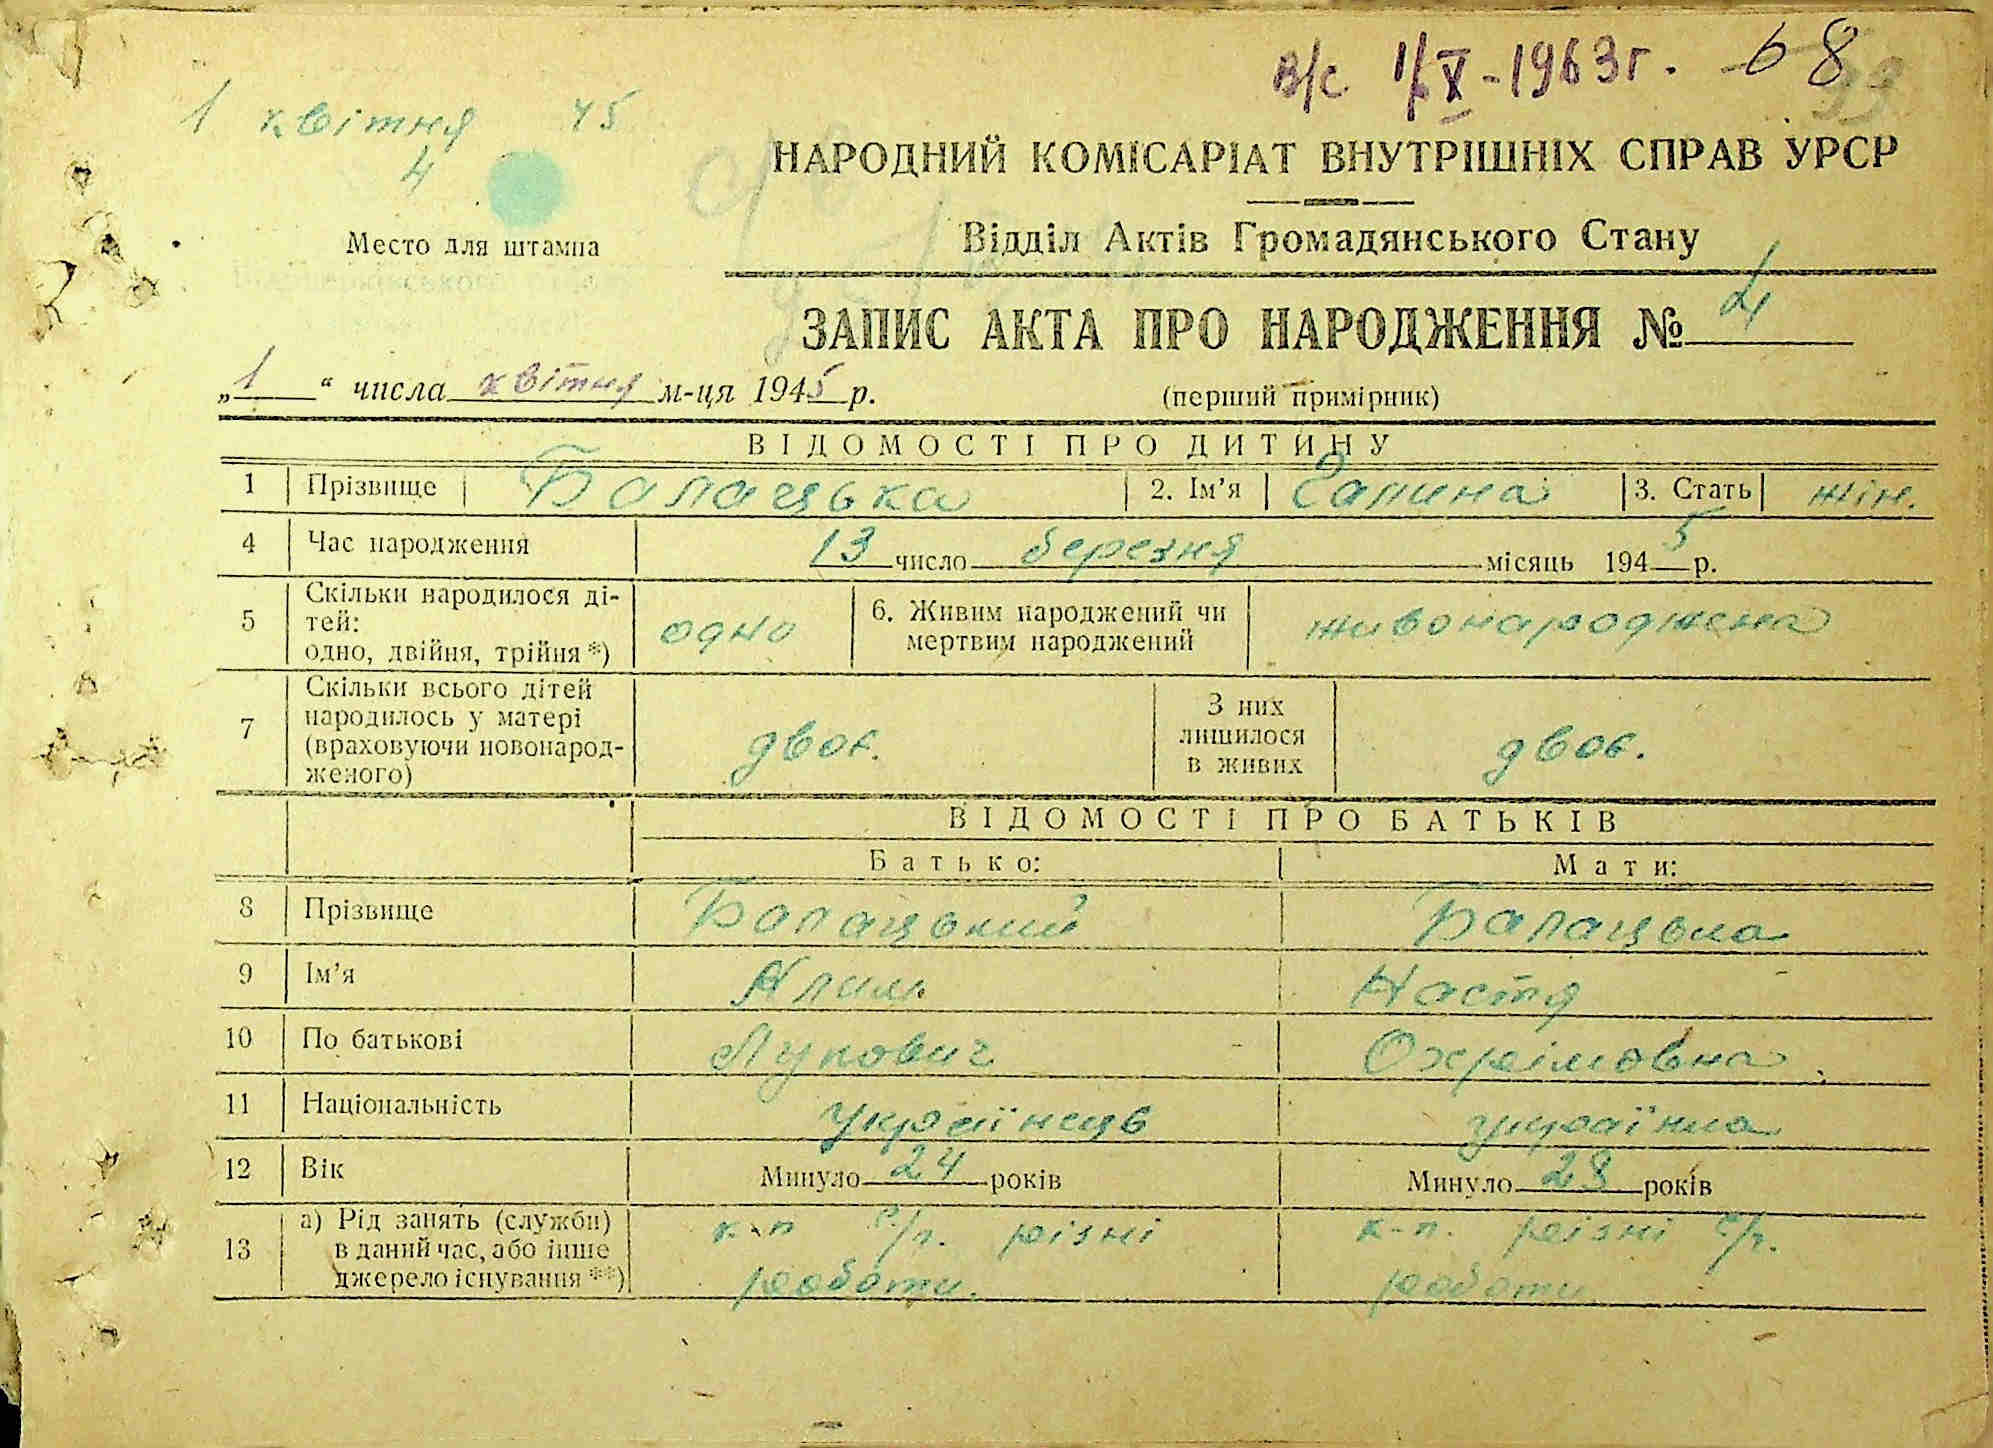 в/с 1/X-1963г. 68
1 квітня 45
4
НАРОДНИЙ КОМІСАРІАТ ВНУТРІШНІХ СПРАВ УРСР
Место для штампа
Відділ Актів Громадянського Стану
ЗАПИС АКТА ПРО НАРОДЖЕННЯ № 4
„1“ числа квітня м-ця 1945 р.
(перший примірник)
ВІДОМОСТІ ПРО ДИТИНУ
1 Прізвище Балацька 2. Ім'я Галина 3. Стать жін.
4 Час народження 13 число березня місяць 1945 р.
5 Скільки народилося ді-
тей:
одно, двійня, трійня *) одно 6. Живим народжений чи
мертвим народжений живонароджена
7 Скільки всього дітей
народилось у матері
(враховуючи новонарод-
женого) двоє. З них
лишилося
в живих двоє.
ВІДОМОСТІ ПРО БАТЬКІВ
Батько: Мати:
8 Прізвище Балацький Балацька
9 Ім'я Клим Настя
10 По батькові Лукович Охрімовна
11 Національність українець українка
12 Вік Минуло 24 років Минуло 28 років
13 а) Рід занять (служби)
в даний час, або інше
джерело існування **) к-п с/г. різні
роботи. к-п. різні с/г.
роботи